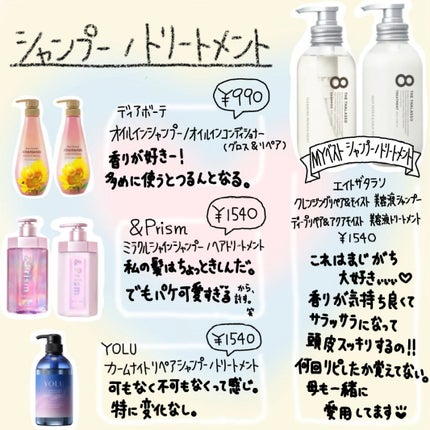 シャンプー/トリートメント
ディアボーテ
¥990
オイルインシャンプー/オイルインコンディショナー
(グロス&リペア)
香りが好きー!
多めに使うとつるんとなる。
&Prism
¥1540
ミラクルシャインシャンプー/ヘアトリートメント
私の髪はちょっときしんだ。
でもパケ可愛すぎるから、許す。笑
YOLU
¥1540
カームナイトリペアシャンプー/トリートメント
可もなく不可もなくって感じ。
特に変化なし。
8
THE THALASSO
8
THE THALASSO
MYベストシャンプー/トリートメント
エイトザタラソ
クレンジングリペア&モイスト 美容液シャンプー
ディープリペア&アクアモイスト 美容液トリートメント
¥1540
これはまじがち
大好きぃぃぃ♡
香りが気持ち良くて
サラッサラになって
頭皮スッキリするの!!
何回リピしたか覚えてない。
母も一緒に
愛用してます
&Prism
&Prism
YOLU